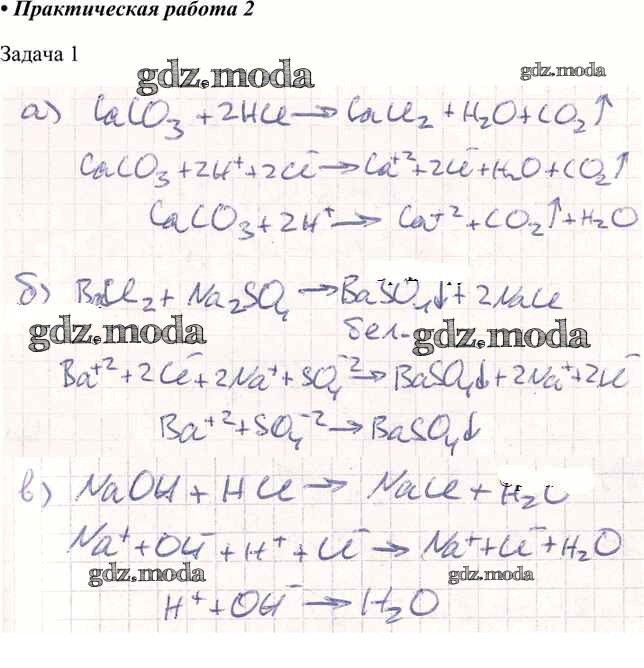 • Практическая работа 2
Задача 1
gdz.moda gdz.moda
а) CaCO₃ + 2HCl → CaCl₂ + H₂O + CO₂↑
CaCO₃ + 2H⁺ + 2Cl⁻ → Ca⁺² + 2Cl⁻ + H₂O + CO₂↑
CaCO₃ + 2H⁺ → Ca⁺² + CO₂↑ + H₂O
б) BaCl₂ + Na₂SO₄ → BaSO₄↓ + 2NaCl
gdz.moda бел- gdz.moda
Ba⁺² + 2Cl⁻ + 2Na⁺ + SO₄⁻² → BaSO₄↓ + 2Na⁺ + 2Cl⁻
Ba⁺² + SO₄⁻² → BaSO₄↓
в) NaOH + HCl → NaCl + H₂O
Na⁺ + OH⁻ + H⁺ + Cl⁻ → Na⁺ + Cl⁻ + H₂O
gdz.moda gdz.moda
H⁺ + OH⁻ → H₂O